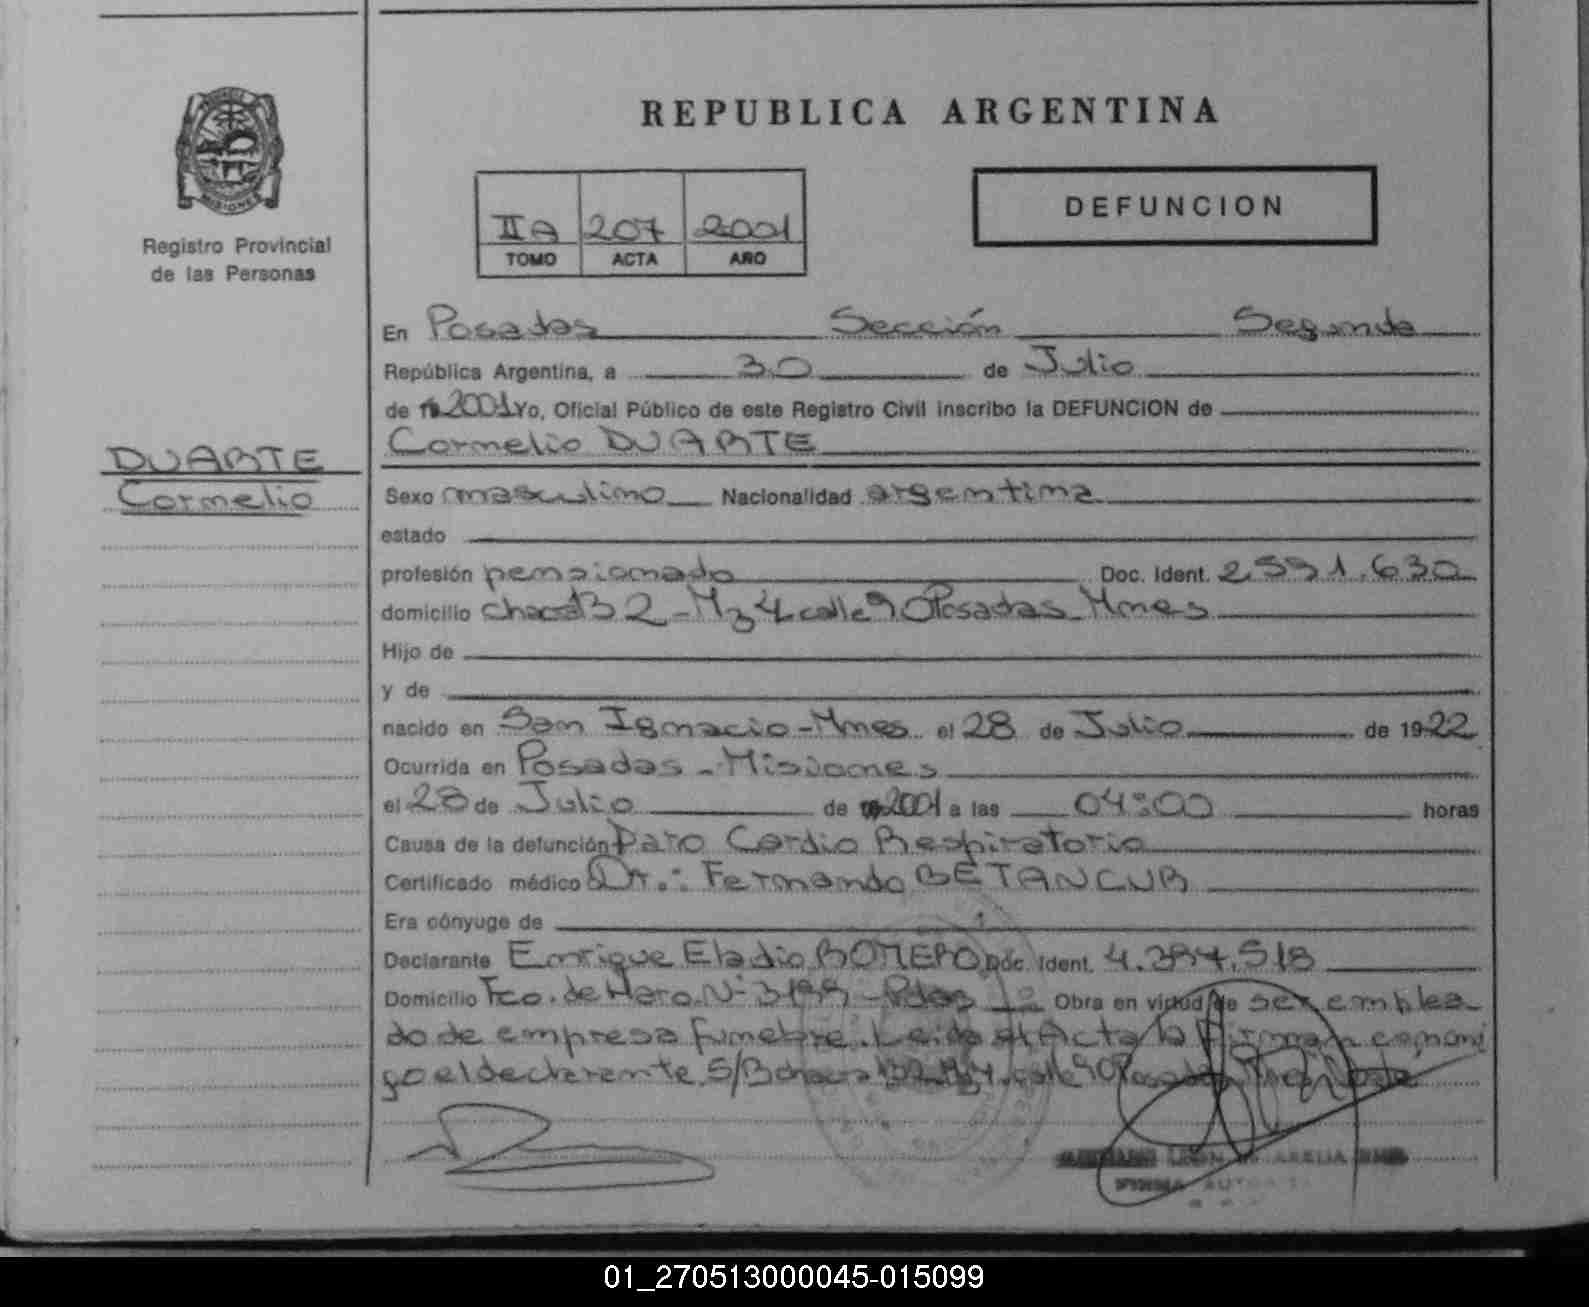 REPUBLICA ARGENTINA
MISIONES
Registro Provincial
de las Personas
IIA 207 2001
TOMO ACTA AÑO
DEFUNCION
En Posadas Sección Segunda
República Argentina, a 30 de Julio
de 2001 Yo, Oficial Público de este Registro Civil inscribo la DEFUNCION de
Cornelio DUARTE
DUARTE
Cornelio
Sexo masculino Nacionalidad argentina
estado
profesión pensionado Doc. Ident. 2.591.630
domicilio chacra 132 - Mz 4 calle 90 Posadas Mnes
Hijo de
y de
nacido en San Ignacio - Mnes el 28 de Julio de 1922
Ocurrida en Posadas - Misiones
el 28 de Julio de 2001 a las 04:00 horas
Causa de la defunción Paro Cardio Respiratorio
Certificado médico Dr.: Fernando BETANCUR
Era cónyuge de
Declarante Enrique Eladio ROMERO Doc. Ident. 4.384.518
Domicilio Fco. de Haro Nº 3199 - Pdas Obra en virtud de ser emplea
do de empresa funebre. Leida el Acta la firman conmi
go el declarante S/B chacra 132 Mz 4 calle 90 Posadas Mnes Vale
FIRMA
01_270513000045-015099